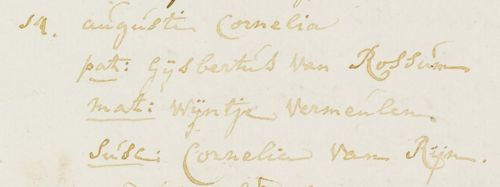 14. augusti Cornelia
pat: Gijsbertus van Rossum
mat: Wijntje Vermeulen.
susc: Cornelia van Rijn.